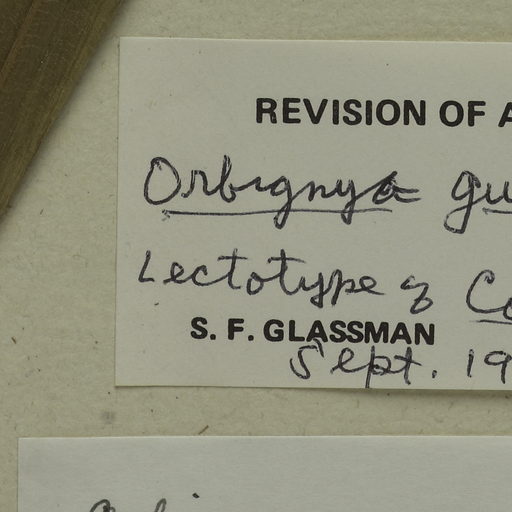 REVISION OF A
Orbignya gu
Lectotype of Co
S. F. GLASSMAN
Sept. 19